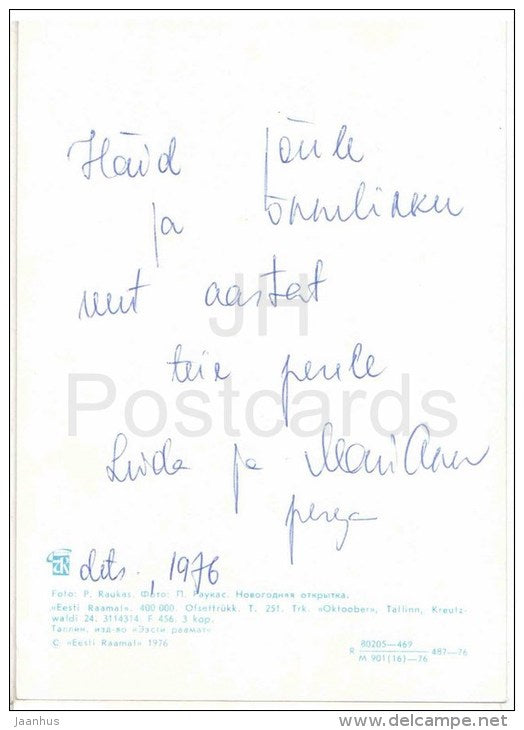 Häid jõule
ja õnnelikku
uut aastat
teie perele
Luida ja Mari Ann
perega
dets., 1976
JH
Postcards
Foto: P. Raukas. Фото: П. Раукас. Новогодняя открытка.
«Eesti Raamat». 400 000. Ofsettrükk. T. 251. Trk. «Oktoober», Tallinn, Kreutz-
waldi 24. 3114314. F 456. 3 kop.
Таллин, изд-во «Ээсти раамат»
© «Eesti Raamat» 1976
R 80205—469 / M 901(16)—76 487—76
janhus
www.delcampe.net